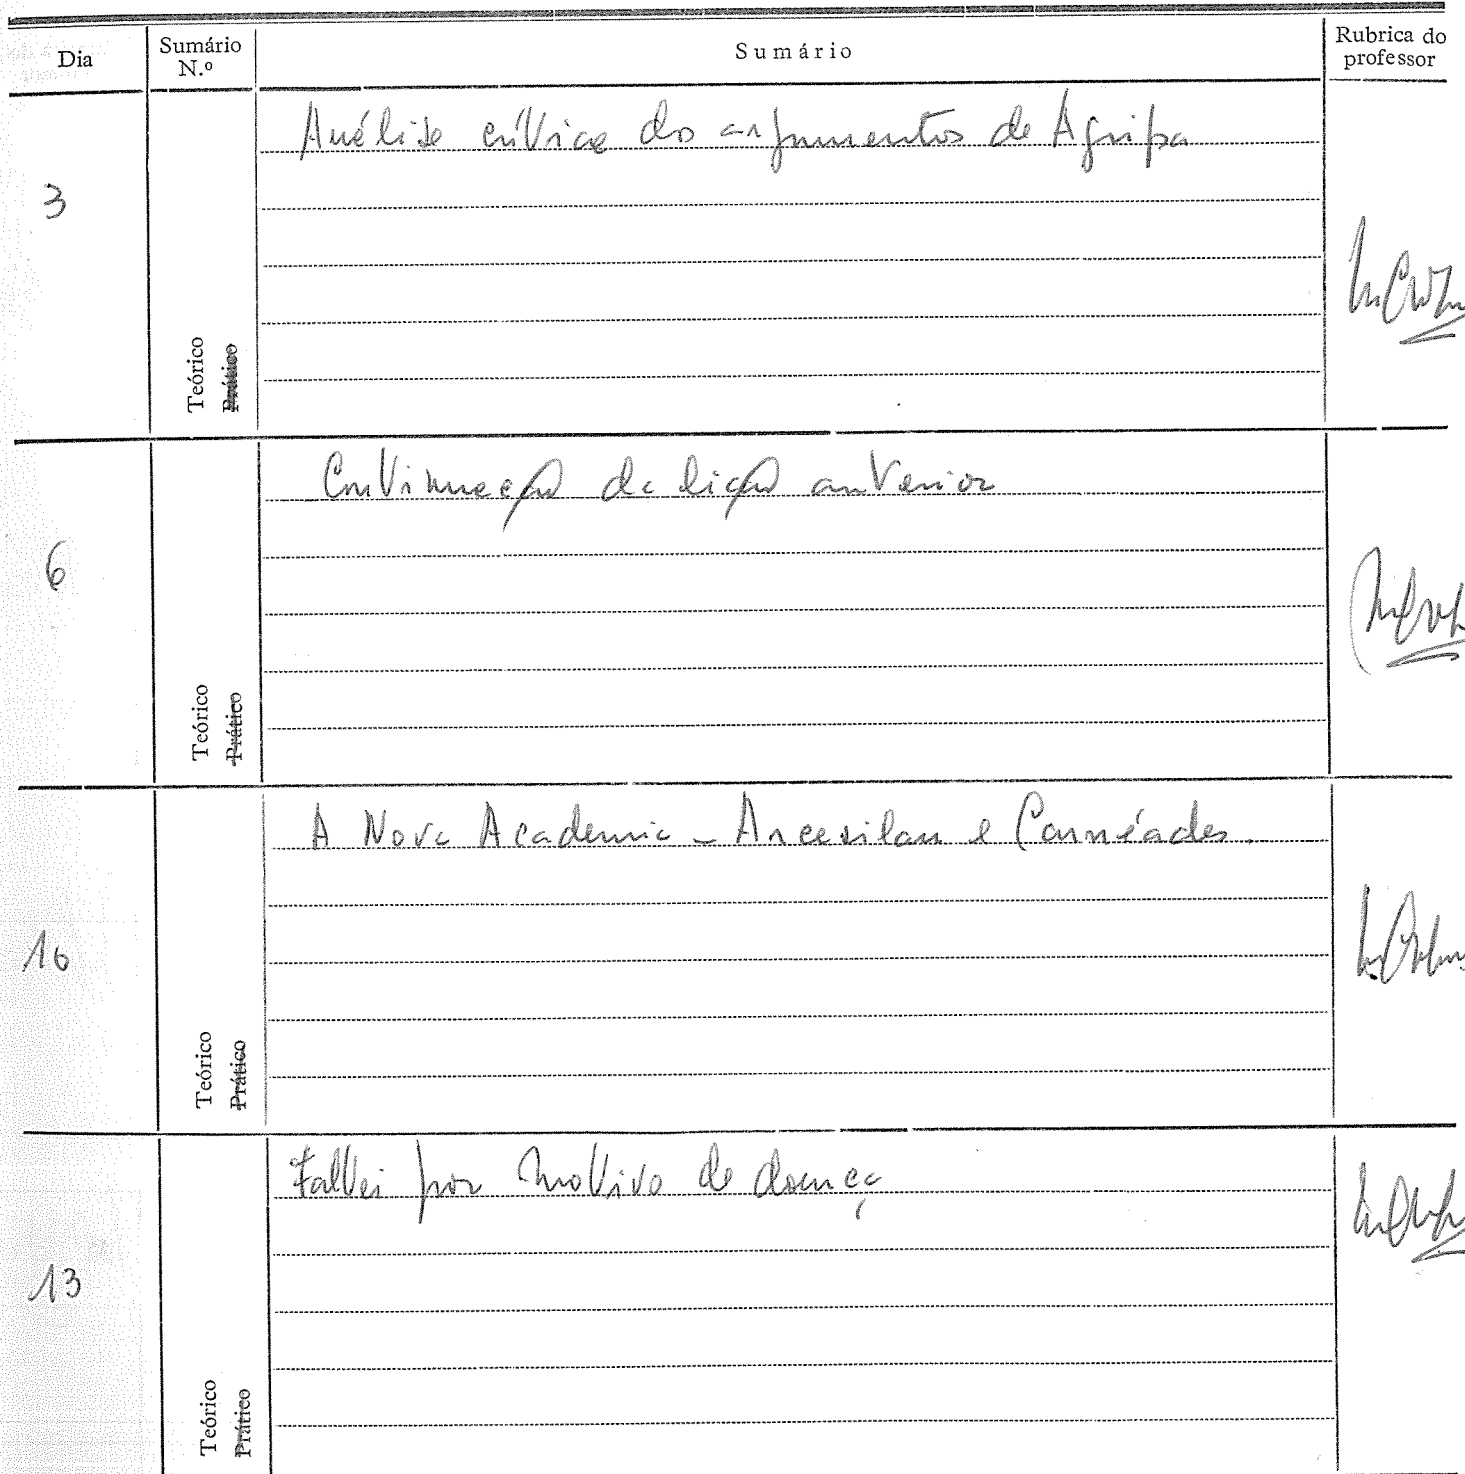 Dia Sumário N.º Sumário Rubrica do professor
3 Teórico Prático Análise crítica dos argumentos de Agripa
6 Teórico Prático Continuação da lição anterior
10 Teórico Prático A Nova Academia - Arcesilau e Carnéades.
13 Teórico Prático Faltei por motivo de doença